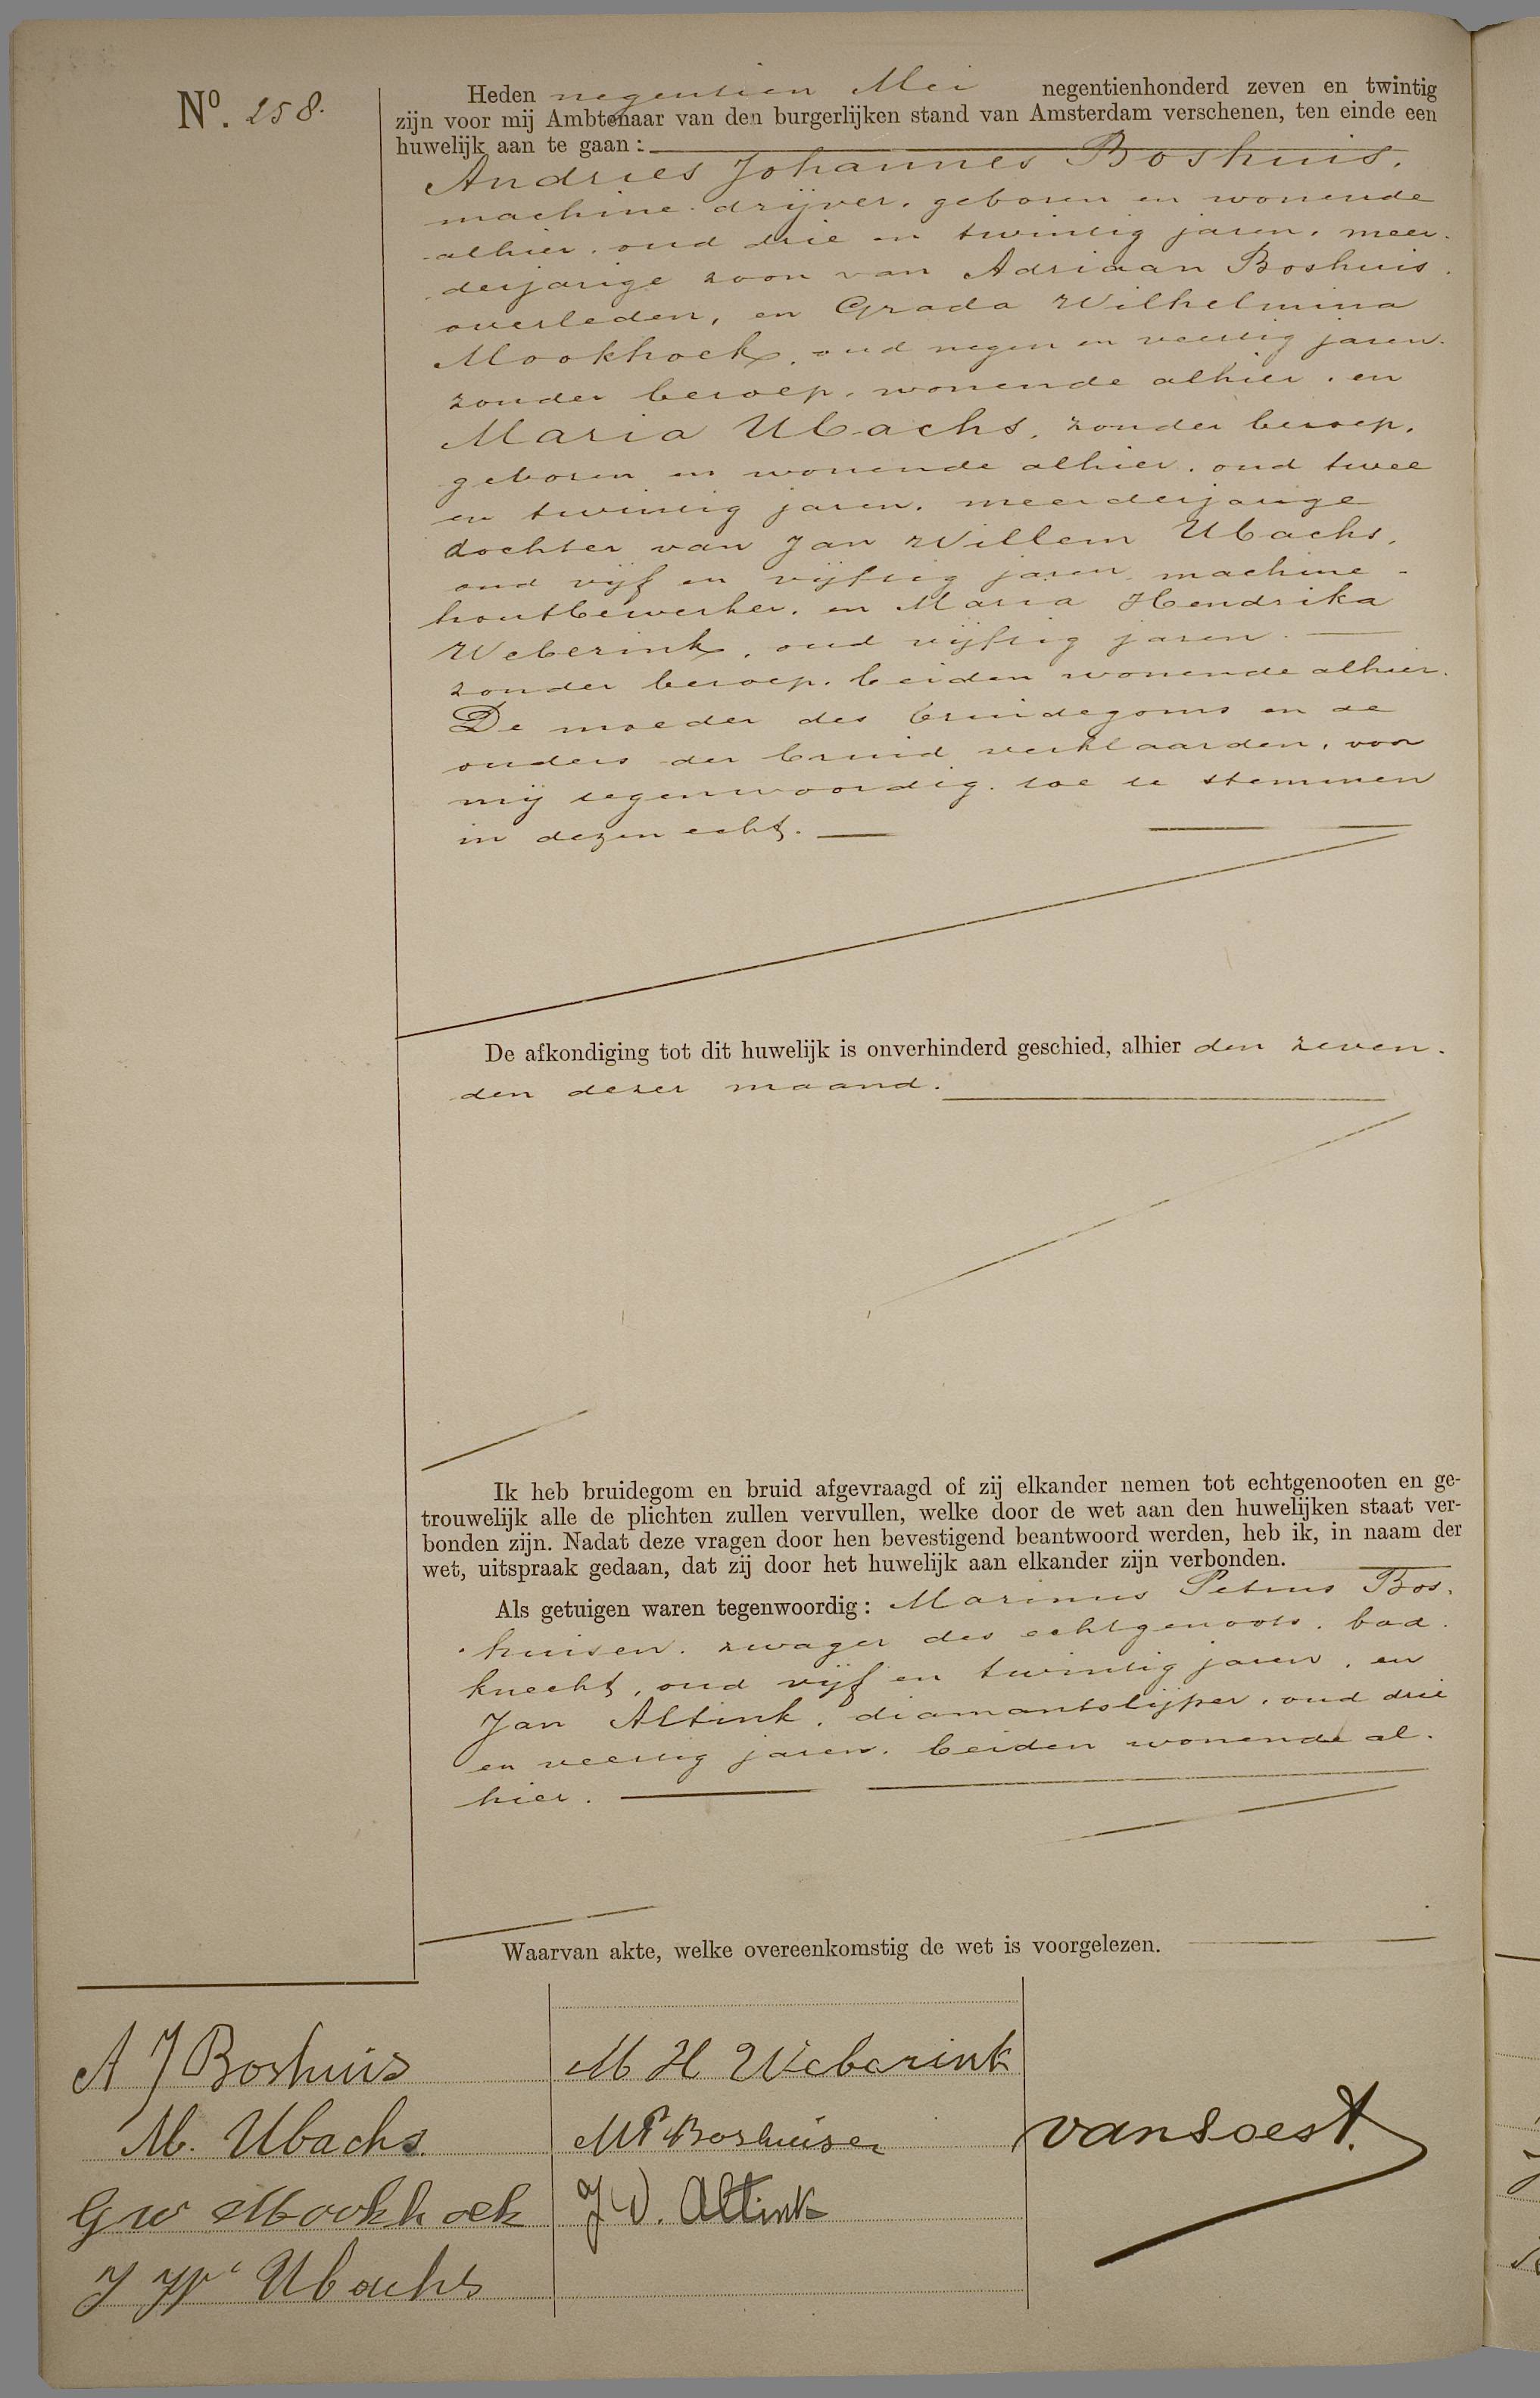 Nº. 258.
Heden negentien Mei negentienhonderd zeven en twintig
zijn voor mij Ambtenaar van den burgerlijken stand van Amsterdam verschenen, ten einde een
huwelijk aan te gaan:
Andries Johannes Boshuis,
machine-drijver, geboren en wonende
alhier, oud drie en twintig jaren, meer-
derjarige zoon van Adriaan Boshuis,
overleden, en Grada Wilhelmina
Mookhoek, oud negen en veertig jaren,
zonder beroep, wonende alhier, en
Maria Ubachs, zonder beroep,
geboren en wonende alhier, oud twee
en twintig jaren, meerderjarige
dochter van Jan Willem Ubachs,
oud vijf en vijftig jaren, machine-
houtbewerker, en Maria Hendrika
Weberink, oud vijftig jaren,
zonder beroep, beiden wonende alhier.
De moeder des bruidegoms en de
ouders der bruid verklaarden, voor
mij tegenwoordig, toe te stemmen
in dezen echt.
De afkondiging tot dit huwelijk is onverhinderd geschied, alhier den zeven-
den dezer maand.
Ik heb bruidegom en bruid afgevraagd of zij elkander nemen tot echtgenooten en ge-
trouwelijk alle de plichten zullen vervullen, welke door de wet aan den huwelijken staat ver-
bonden zijn. Nadat deze vragen door hen bevestigend beantwoord werden, heb ik, in naam der
wet, uitspraak gedaan, dat zij door het huwelijk aan elkander zijn verbonden.
Als getuigen waren tegenwoordig: Marinus Petrus Bos-
huisen, zwager des echtgenoots, bad-
knecht, oud vijf en twintig jaren, en
Jan Altink, diamantslijper, oud drie
en veertig jaren, beiden wonende al-
hier.
Waarvan akte, welke overeenkomstig de wet is voorgelezen.
A J Boshuis
M. Ubachs
G W Mookhoek
J W Ubachs
M H Weberink
M P Boshuisen
J Altink
van Soest.